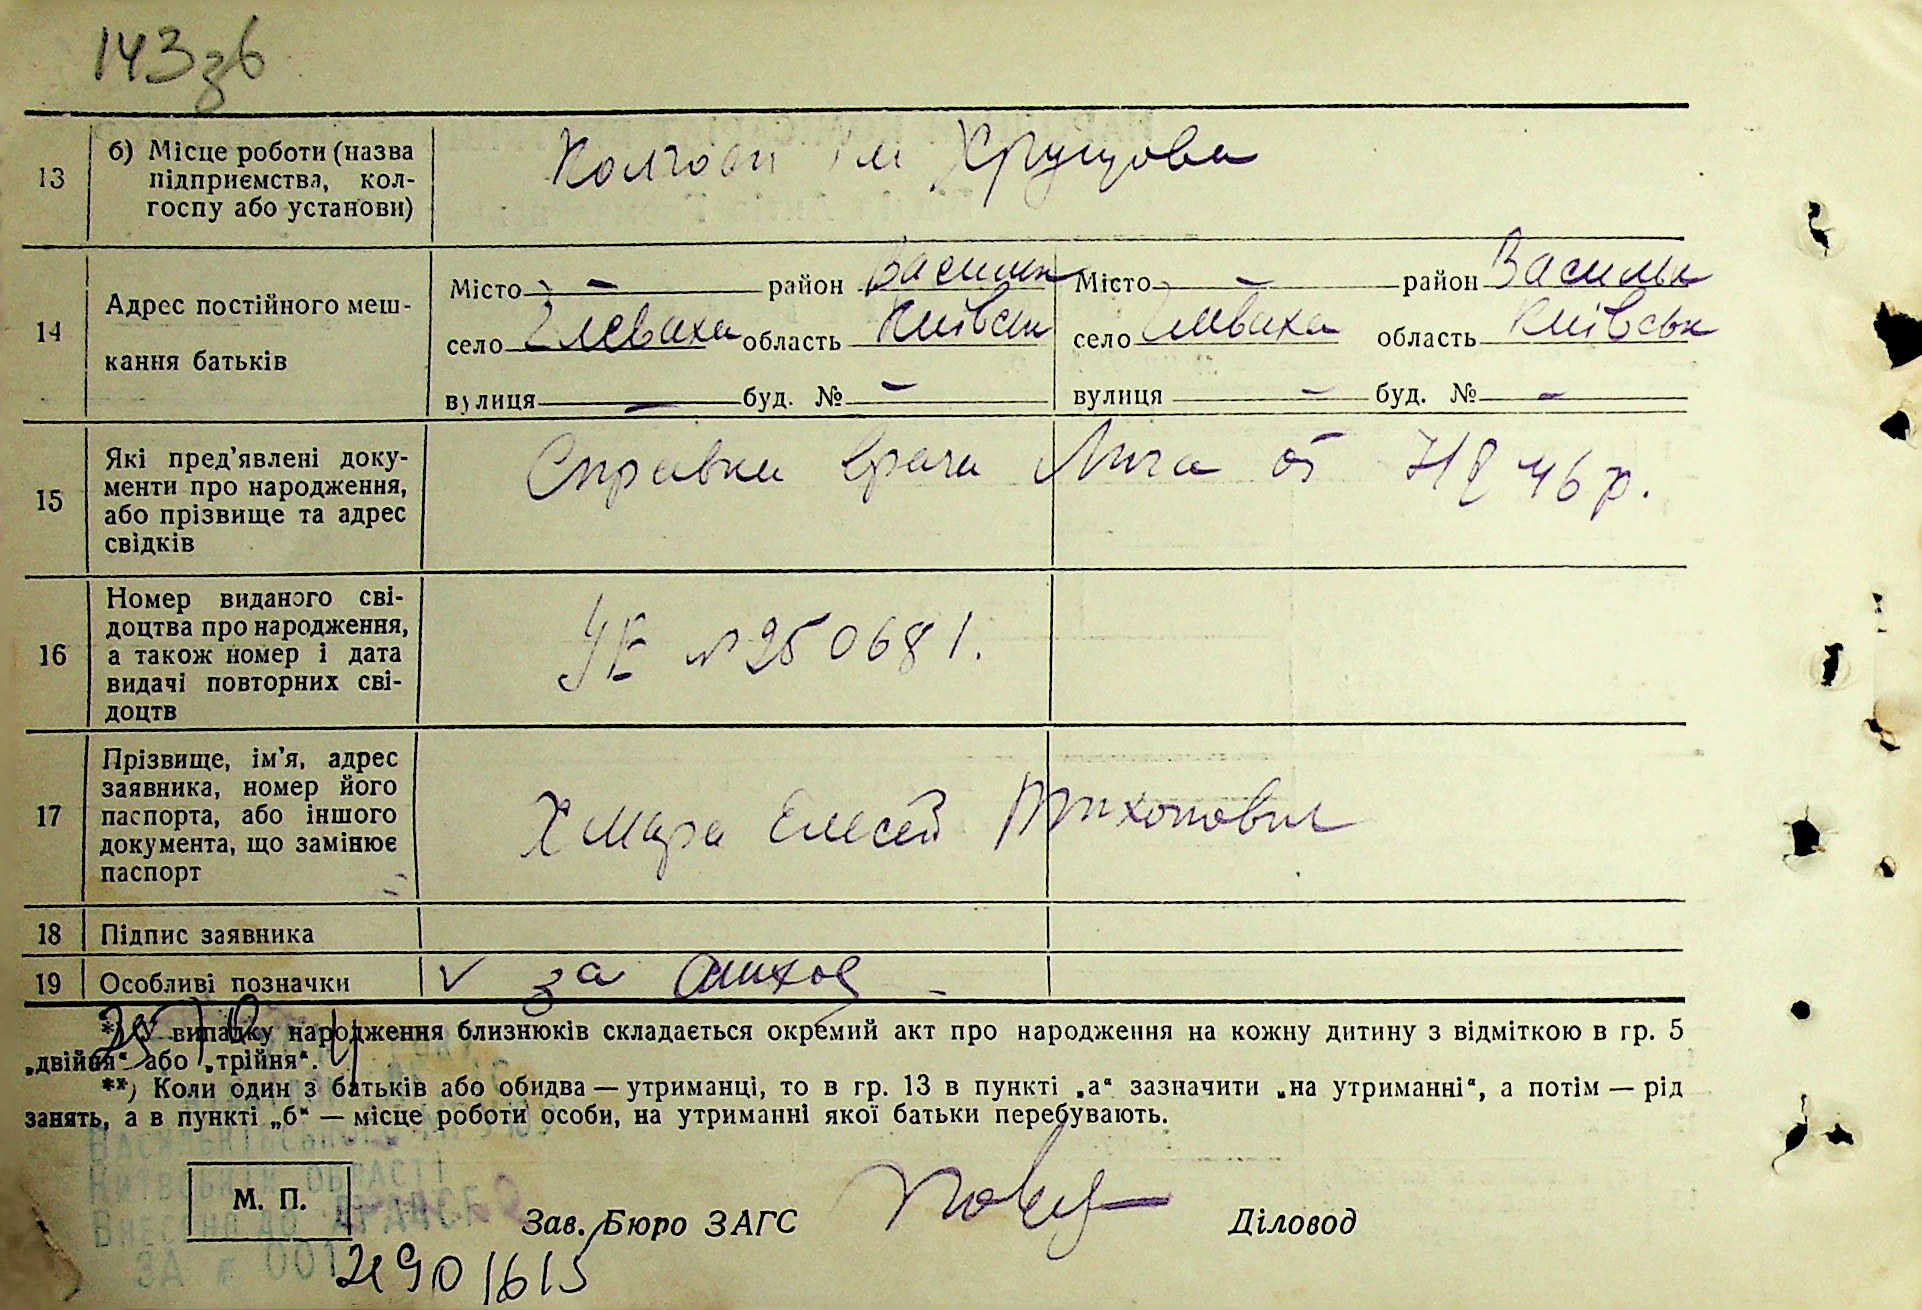 143зв
13 б) Місце роботи (назва підприємства, колгоспу або установи) Колгосп Ім Хрущова
14 Адрес постійного мешкання батьків
Місто — район Васильк Місто — район Васильк
село Глеваха область Київськ село Глеваха область Київськ
вулиця — буд. № — вулиця — буд. № —
15 Які пред'явлені документи про народження, або прізвище та адрес свідків Справка врача от 46 р.
16 Номер виданого свідоцтва про народження, а також номер і дата видачі повторних свідоцтв УЕ № 250681.
17 Прізвище, ім'я, адрес заявника, номер його паспорта, або іншого документа, що замінює паспорт Хмара Елесей Тихонович
18 Підпис заявника
19 Особливі позначки V за
*) У випадку народження близнюків складається окремий акт про народження на кожну дитину з відміткою в гр. 5
„двійня“ або „трійня“.
**) Коли один з батьків або обидва — утриманці, то в гр. 13 в пункті „а“ зазначити „на утриманні“, а потім — рід
занять, а в пункті „б“ — місце роботи особи, на утриманні якої батьки перебувають.
Київської області
М. П.
Внесено до
Зав. Бюро ЗАГС Діловод
за № 001